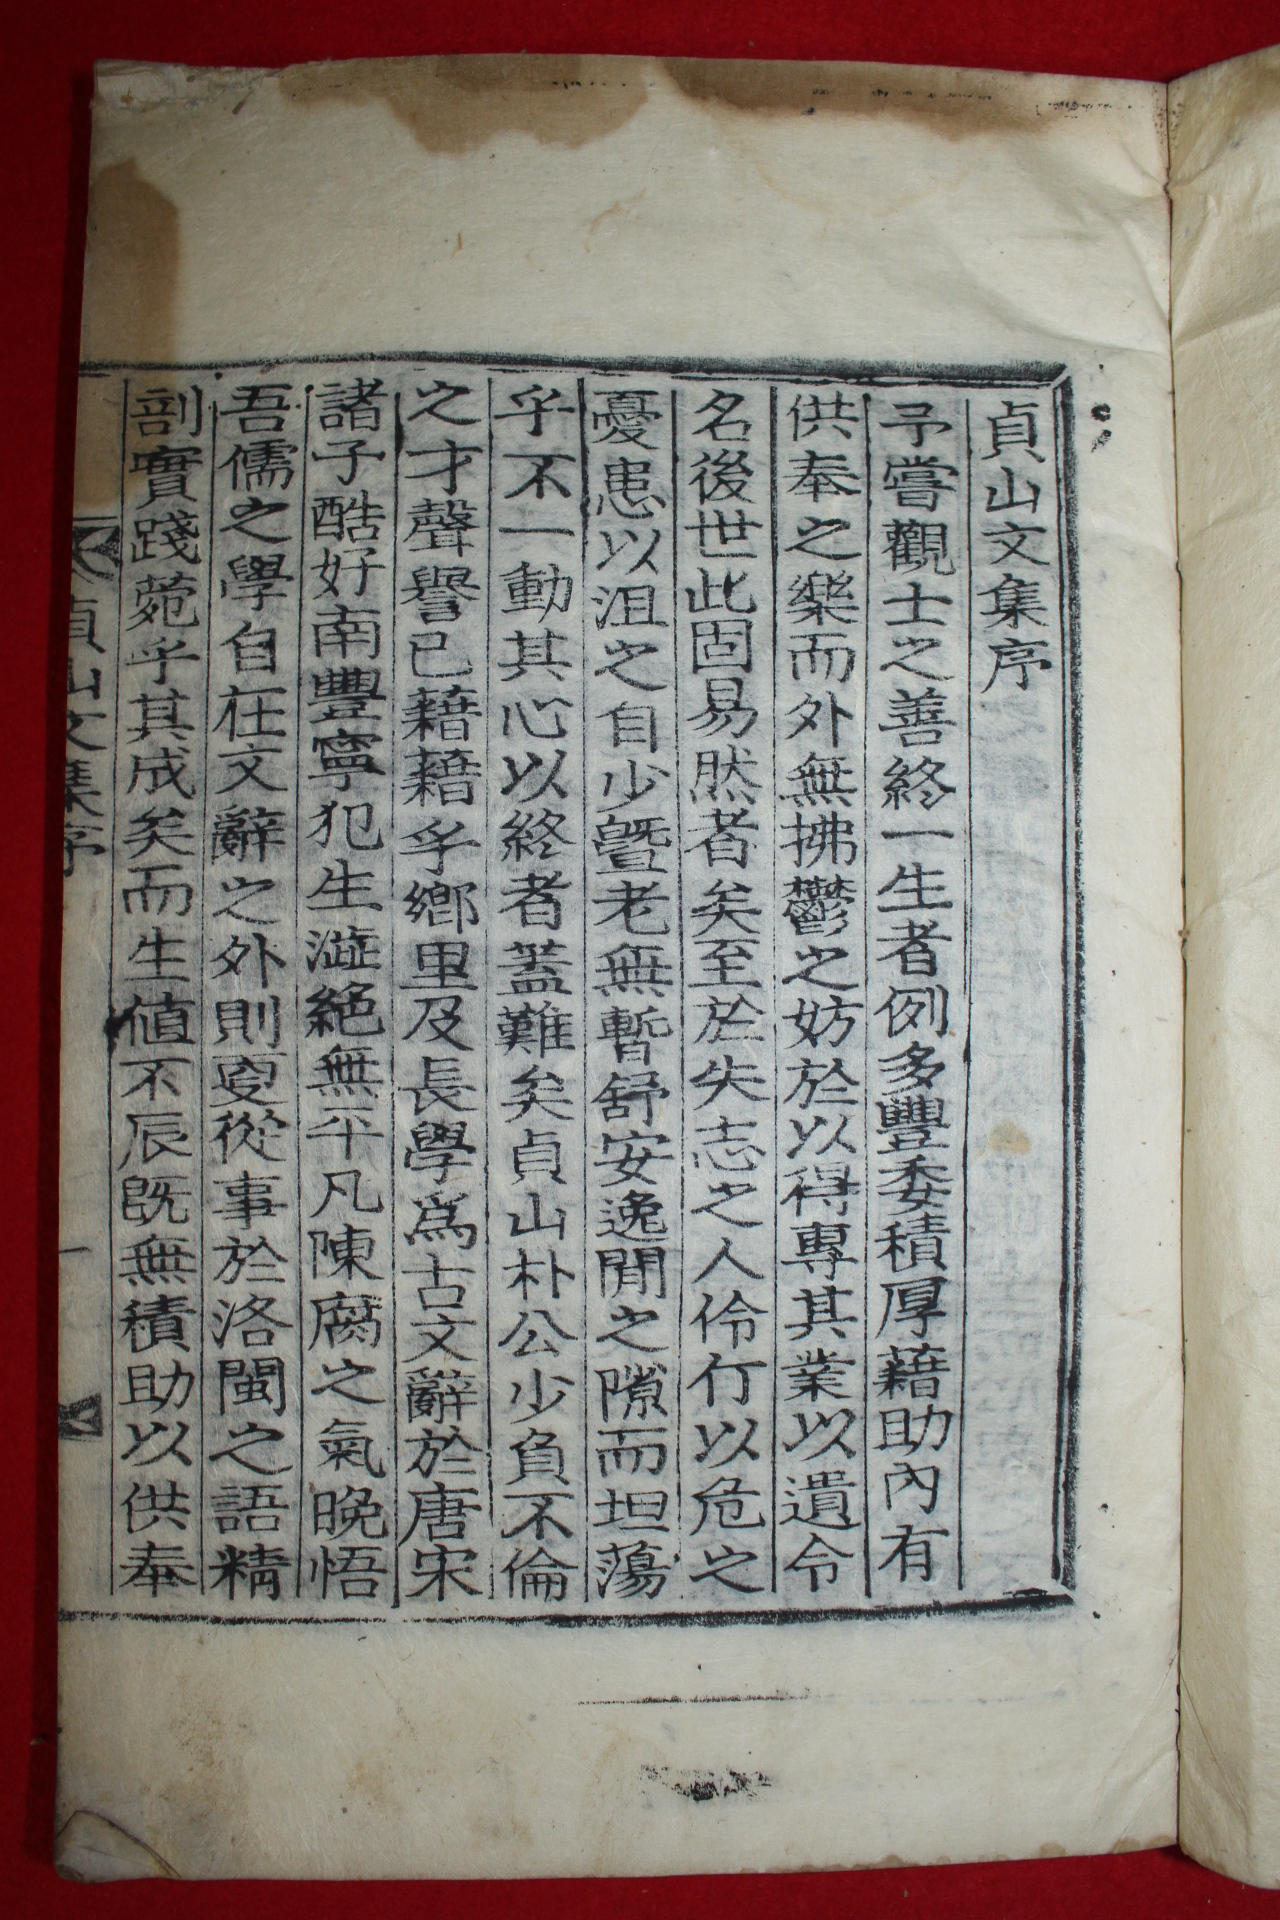 貞山文集序
予嘗觀士之善終一生者例多豐委積厚藉助內有
供奉之樂而外無拂鬱之妨於以得專其業以遺令
名後世此固易然者矣至於失志之人伶仃以危之
憂患以沮之自少曁老無暫舒安逸閒之隙而坦蕩
乎不一動其心以終者蓋難矣貞山朴公少負不倫
之才聲譽已藉藉乎鄉里及長學爲古文辭於唐宋
諸子酷好南豐寧犯生澁絕無平凡陳腐之氣晩悟
吾儒之學自在文辭之外則更從事於洛閩之語精
剖實踐菀乎其成矣而生値不辰既無積助以供奉
貞山文集序
一